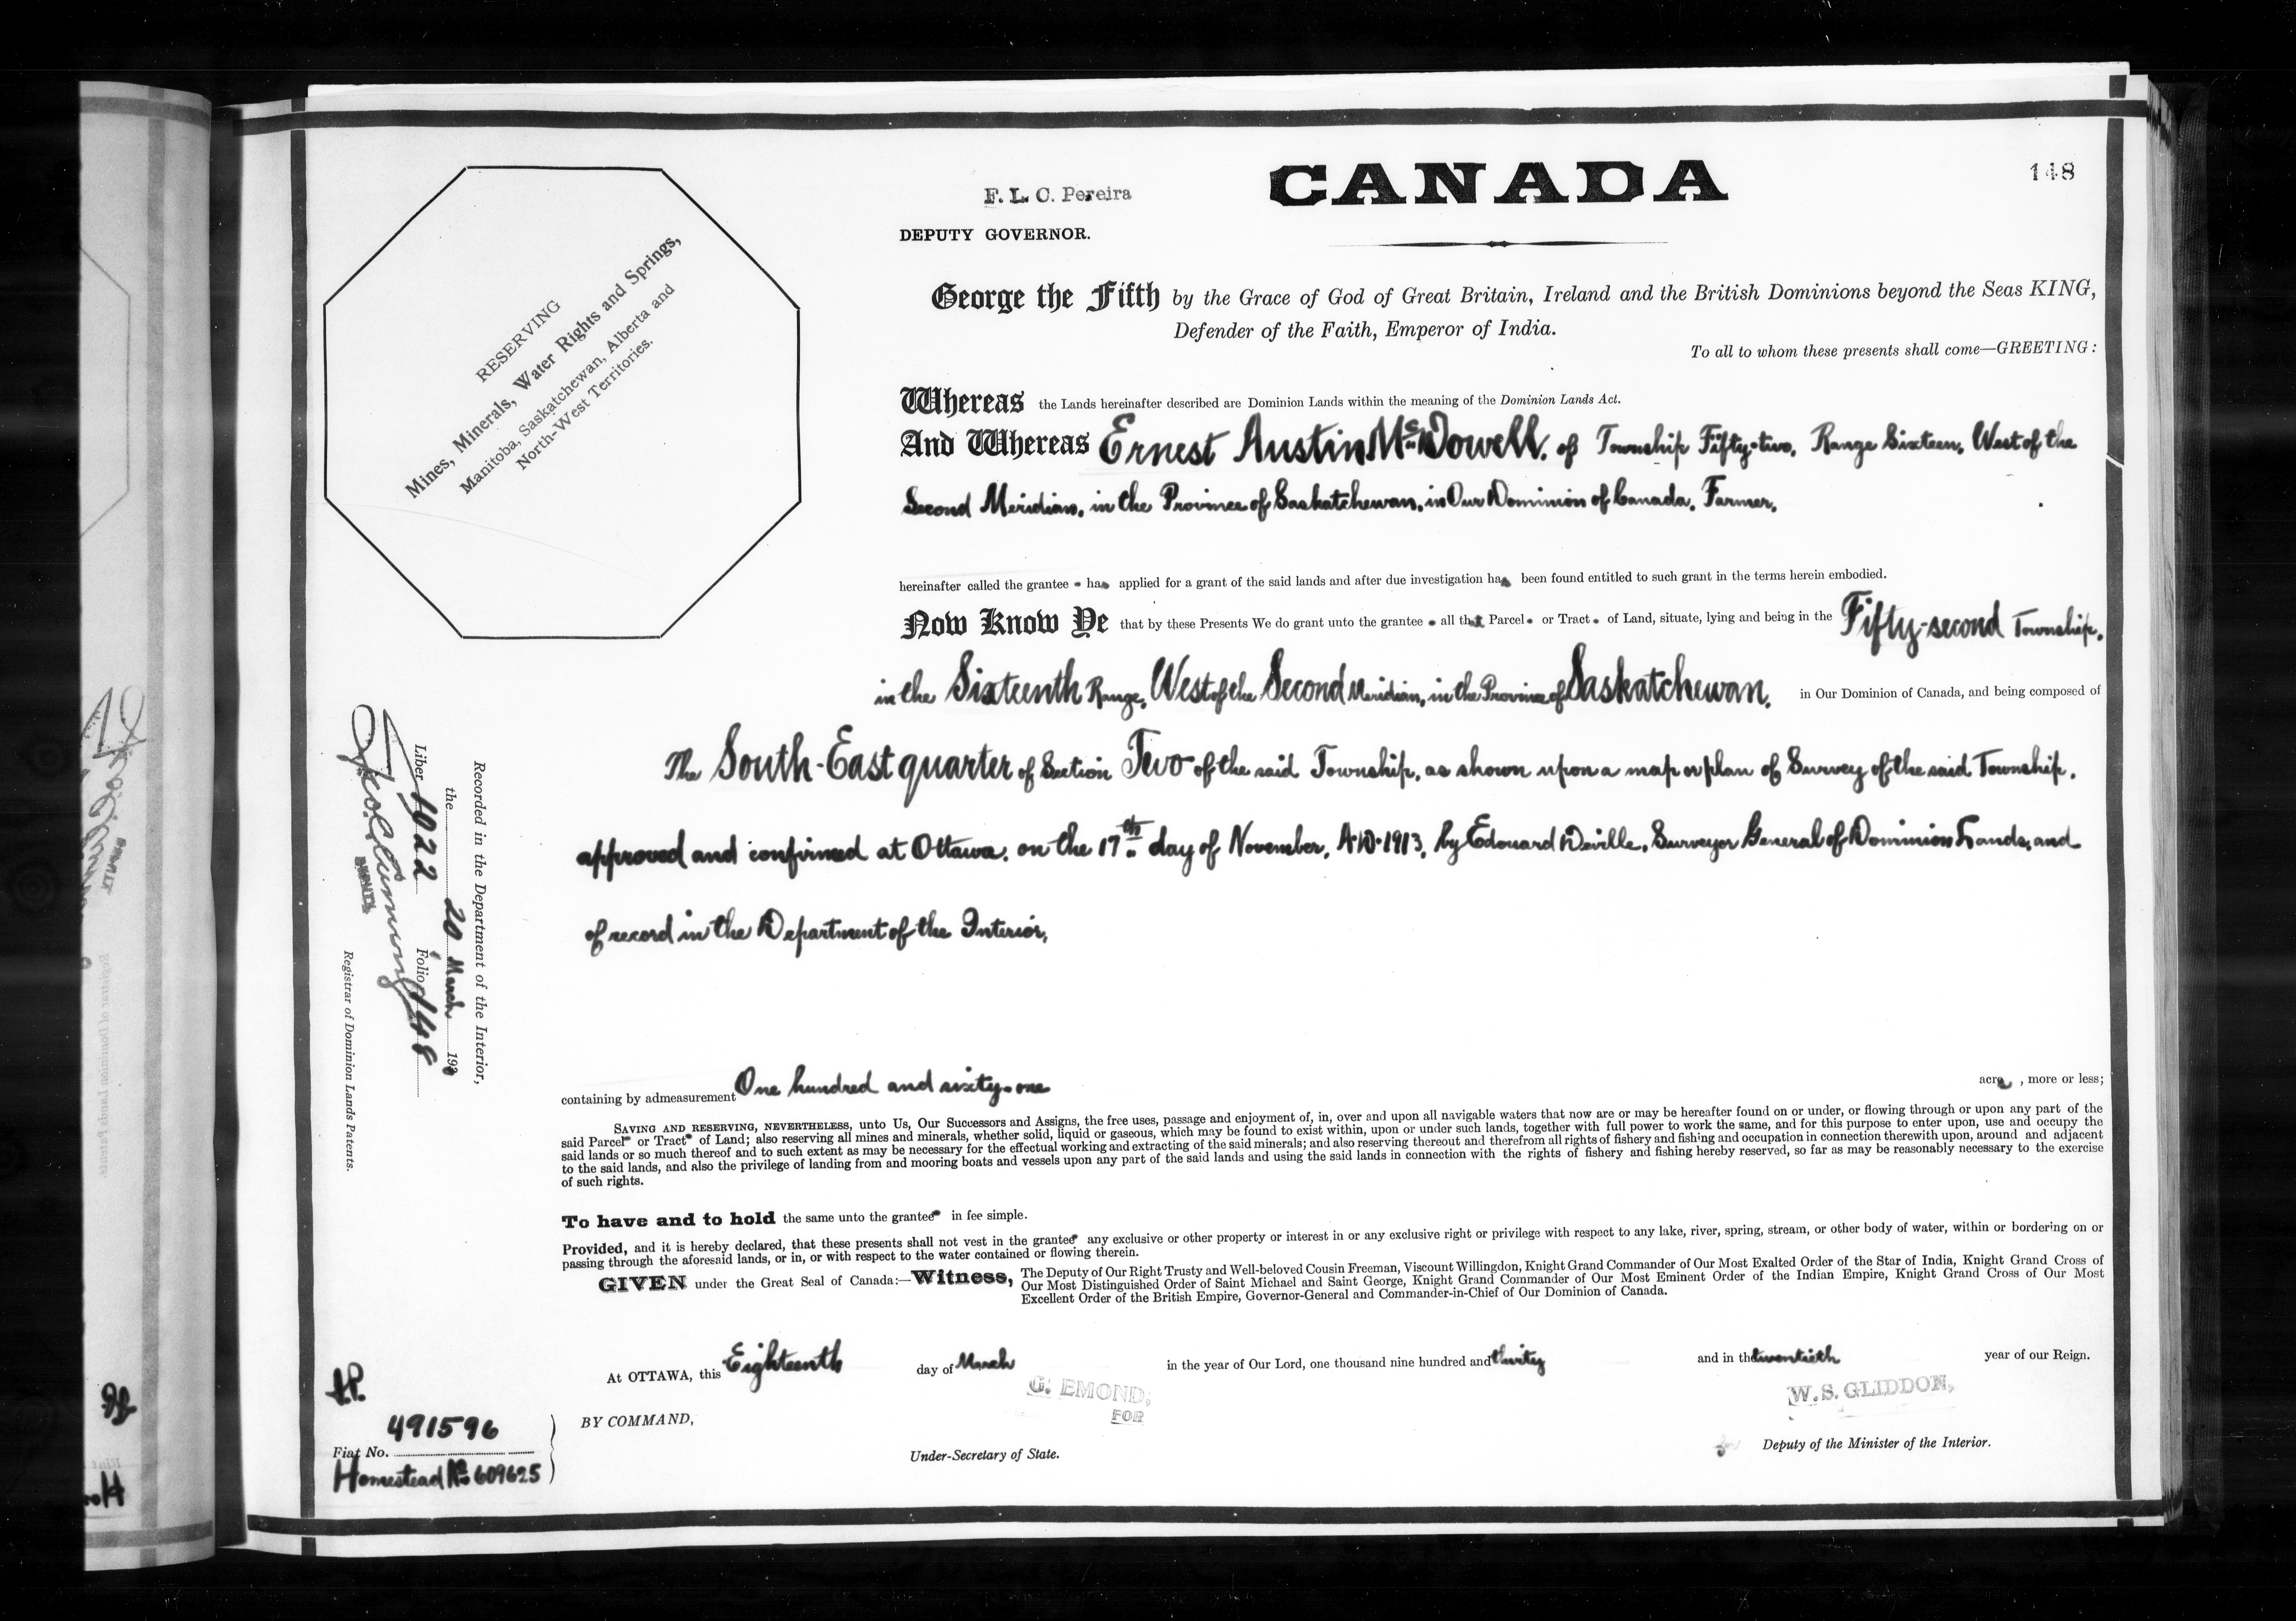 148
F. L. C. Pereira
CANADA
DEPUTY GOVERNOR.
RESERVING
Mines, Minerals, Water Rights and Springs,
Manitoba, Saskatchewan, Alberta and
North-West Territories.
George the Fifth by the Grace of God of Great Britain, Ireland and the British Dominions beyond the Seas KING,
Defender of the Faith, Emperor of India.
To all to whom these presents shall come—GREETING:
Whereas the Lands hereinafter described are Dominion Lands within the meaning of the Dominion Lands Act.
And Whereas Ernest Austin McDowell, of Township Fifty-two, Range Sixteen, West of the
Second Meridian, in the Province of Saskatchewan, in Our Dominion of Canada, Farmer,
hereinafter called the grantee has applied for a grant of the said lands and after due investigation has been found entitled to such grant in the terms herein embodied.
Now Know Ye that by these Presents We do grant unto the grantee all that Parcel or Tract of Land, situate, lying and being in the Fifty-second Township,
in the Sixteenth Range, West of the Second Meridian, in the Province of Saskatchewan, in Our Dominion of Canada, and being composed of
The South-East quarter of Section Two of the said Township, as shown upon a map or plan of Survey of the said Township,
approved and confirmed at Ottawa, on the 17th day of November, A.D. 1913, by Edouard Deville, Surveyor General of Dominion Lands, and
of record in the Department of the Interior,
containing by admeasurement One hundred and sixty-one acre, more or less;
SAVING AND RESERVING, NEVERTHELESS, unto Us, Our Successors and Assigns, the free uses, passage and enjoyment of, in, over and upon all navigable waters that now are or may be hereafter found on or under, or flowing through or upon any part of the
said Parcel or Tract of Land; also reserving all mines and minerals, whether solid, liquid or gaseous, which may be found to exist within, upon or under such lands, together with full power to work the same, and for this purpose to enter upon, use and occupy the
said lands or so much thereof and to such extent as may be necessary for the effectual working and extracting of the said minerals; and also reserving thereout and therefrom all rights of fishery and fishing and occupation in connection therewith upon, around and adjacent
to the said lands, and also the privilege of landing from and mooring boats and vessels upon any part of the said lands and using the said lands in connection with the rights of fishery and fishing hereby reserved, so far as may be reasonably necessary to the exercise
of such rights.
To have and to hold the same unto the grantee in fee simple.
Provided, and it is hereby declared, that these presents shall not vest in the grantee any exclusive or other property or interest in or any exclusive right or privilege with respect to any lake, river, spring, stream, or other body of water, within or bordering on or
passing through the aforesaid lands, or in, or with respect to the water contained or flowing therein.
GIVEN under the Great Seal of Canada:—Witness, The Deputy of Our Right Trusty and Well-beloved Cousin Freeman, Viscount Willingdon, Knight Grand Commander of Our Most Exalted Order of the Star of India, Knight Grand Cross of
Our Most Distinguished Order of Saint Michael and Saint George, Knight Grand Commander of Our Most Eminent Order of the Indian Empire, Knight Grand Cross of Our Most
Excellent Order of the British Empire, Governor-General and Commander-in-Chief of Our Dominion of Canada.
At OTTAWA, this Eighteenth day of March in the year of Our Lord, one thousand nine hundred and thirty and in the twentieth year of our Reign.
G. EMOND,
FOR
W. S. GLIDDON,
BY COMMAND,
Under-Secretary of State.
Deputy of the Minister of the Interior.
491596
Fiat No.
Homestead No 609625
Recorded in the Department of the Interior,
the 20 March 1930
Liber 1022 Folio 148
Registrar of Dominion Lands Patents.